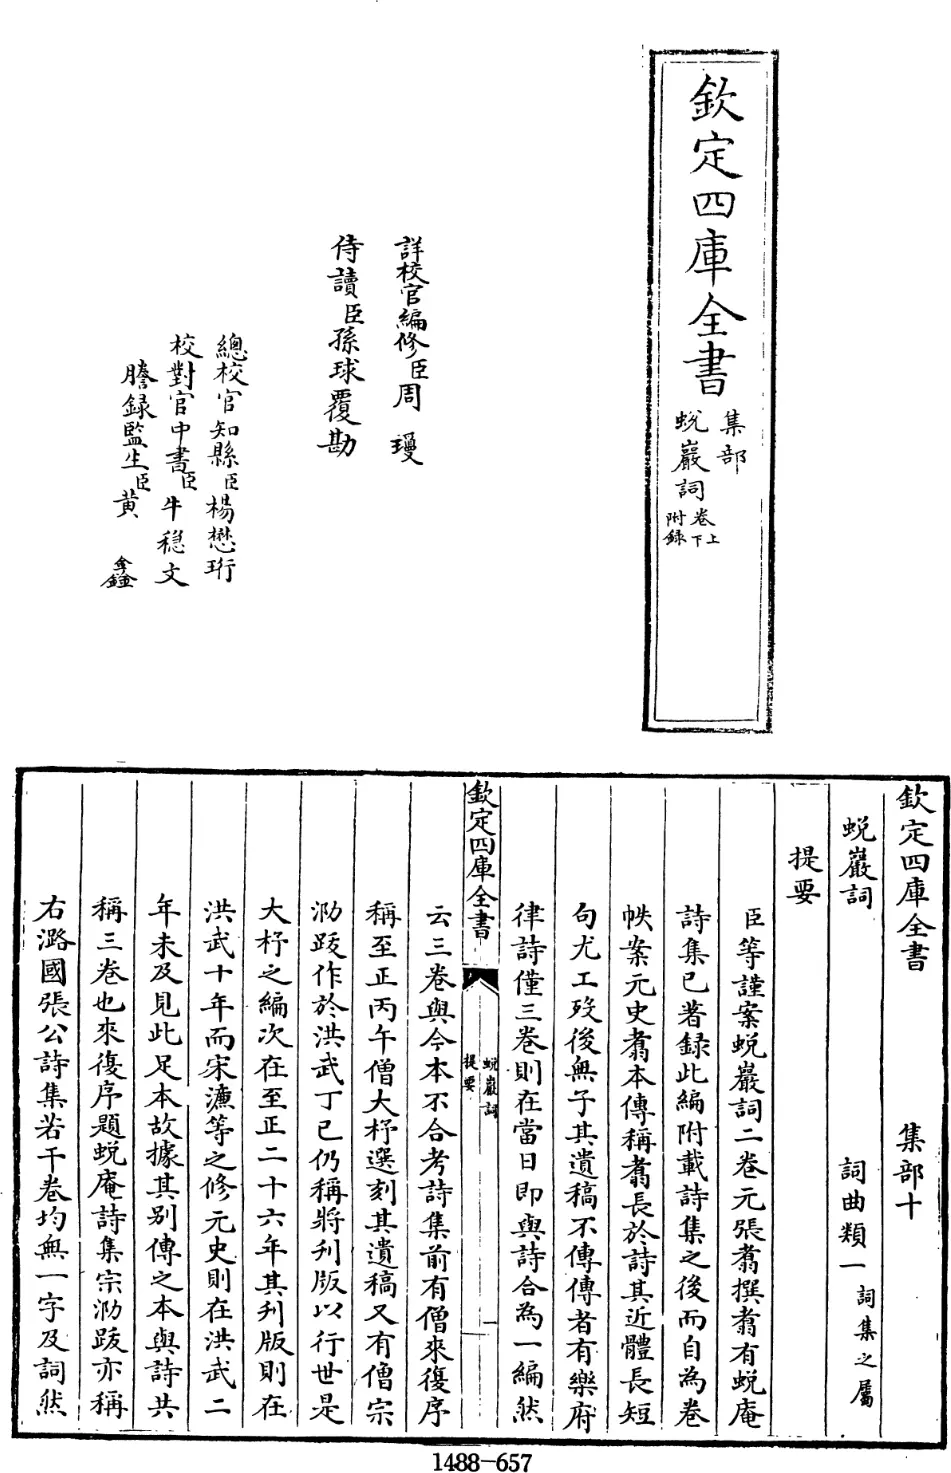 欽定四庫全書
集部
蛻巖詞卷上下附錄
詳校官編修臣周瓊
侍讀臣孫球覆勘
總校官知縣臣楊懋珩
校對官中書臣牛稔文
謄錄監生臣黄鑫
欽定四庫全書　集部十
蛻巖詞　詞曲類一詞集之屬
提要
臣等謹案蛻巖詞二卷元張翥撰翥有蛻庵
詩集已著録此編附載詩集之後而自為卷
帙案元史翥本傳稱翥長於詩其近體長短
句尤工歿後無子其遺稿不傳傳者有樂府
律詩僅三卷則在當日即與詩合為一編然
欽定四庫全書
蛻巖詞
提要
一
云三卷與今本不合考詩集前有僧來復序
稱至正丙午僧大杼選刻其遺稿又有僧宗
泐跋作於洪武丁巳仍稱將刋版以行世是
大杼之編次在至正二十六年其刋版則在
洪武十年而宋濂等之修元史則在洪武二
年未及見此足本故據其別傳之本與詩共
稱三卷也來復序題蛻庵詩集宗泐跋亦稱
右潞國張公詩集若干卷均無一字及詞然
1488-657